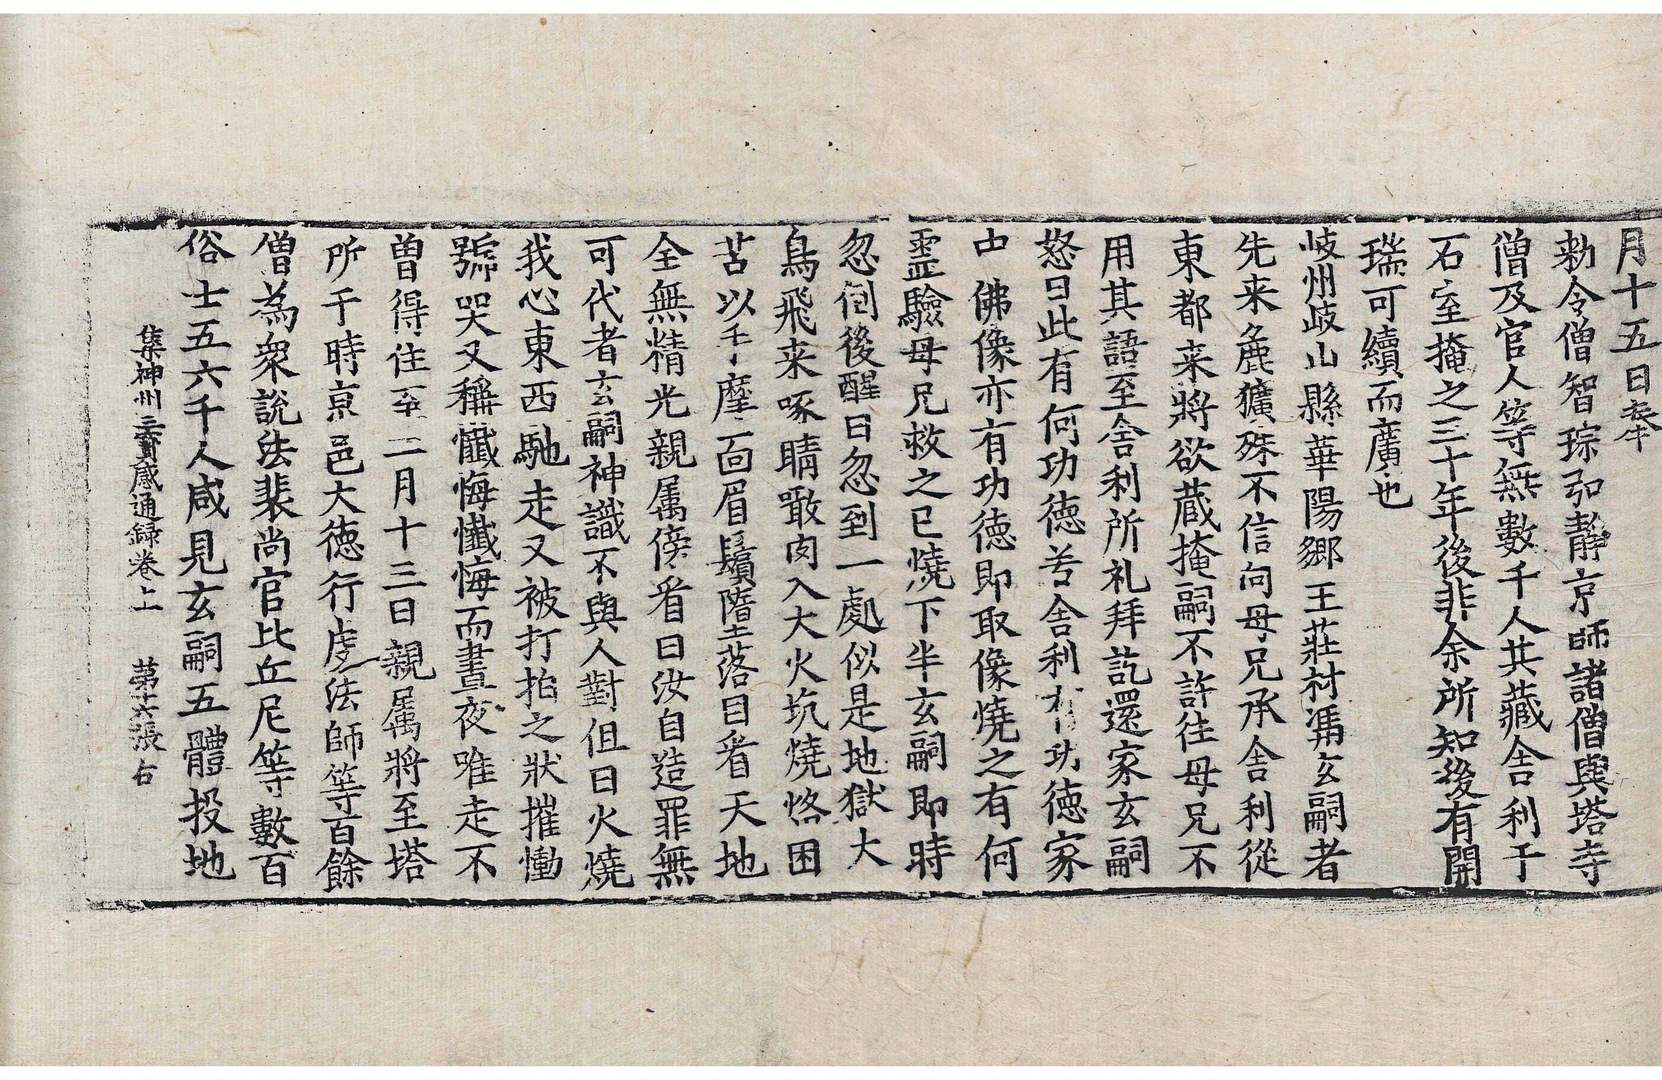 月十五日奉
勑令僧智琮弘靜京師諸僧與塔寺
僧及官人等無數千人共藏舍利于
石室掩之三十年後非余所知後有開
瑞可續而廣也
岐州岐山縣華陽鄉王莊村馮玄嗣者
先来麁獷殊不信向母兄承舍利從
東都来將欲蔵掩嗣不許往母兄不
用其語至舍利所礼拜訖還家玄嗣
怒曰此有何功德若舍利有功德家
中佛像亦有功德即取像燒之有何
靈驗母兄救之已燒下半玄嗣即時
忽倒後醒曰忽到一處似是地獄大
鳥飛来啄睛噉肉入大火坑燒烙困
苦以手摩面眉鬚墮落目看天地
全無精光親属傍看曰汝自造罪無
可代者玄嗣神識不與人對但曰火燒
我心東西馳走又被打拍之狀摧慟
號哭又稱懺悔懺悔而晝夜唯走不
曽得住至二月十三日親属將至塔
所于時京邑大德行虔法師等百餘
僧為衆說法裴尚官比丘尼等數百
俗士五六千人咸見玄嗣五體投地
集神州三寳感通録卷上 第六張 右